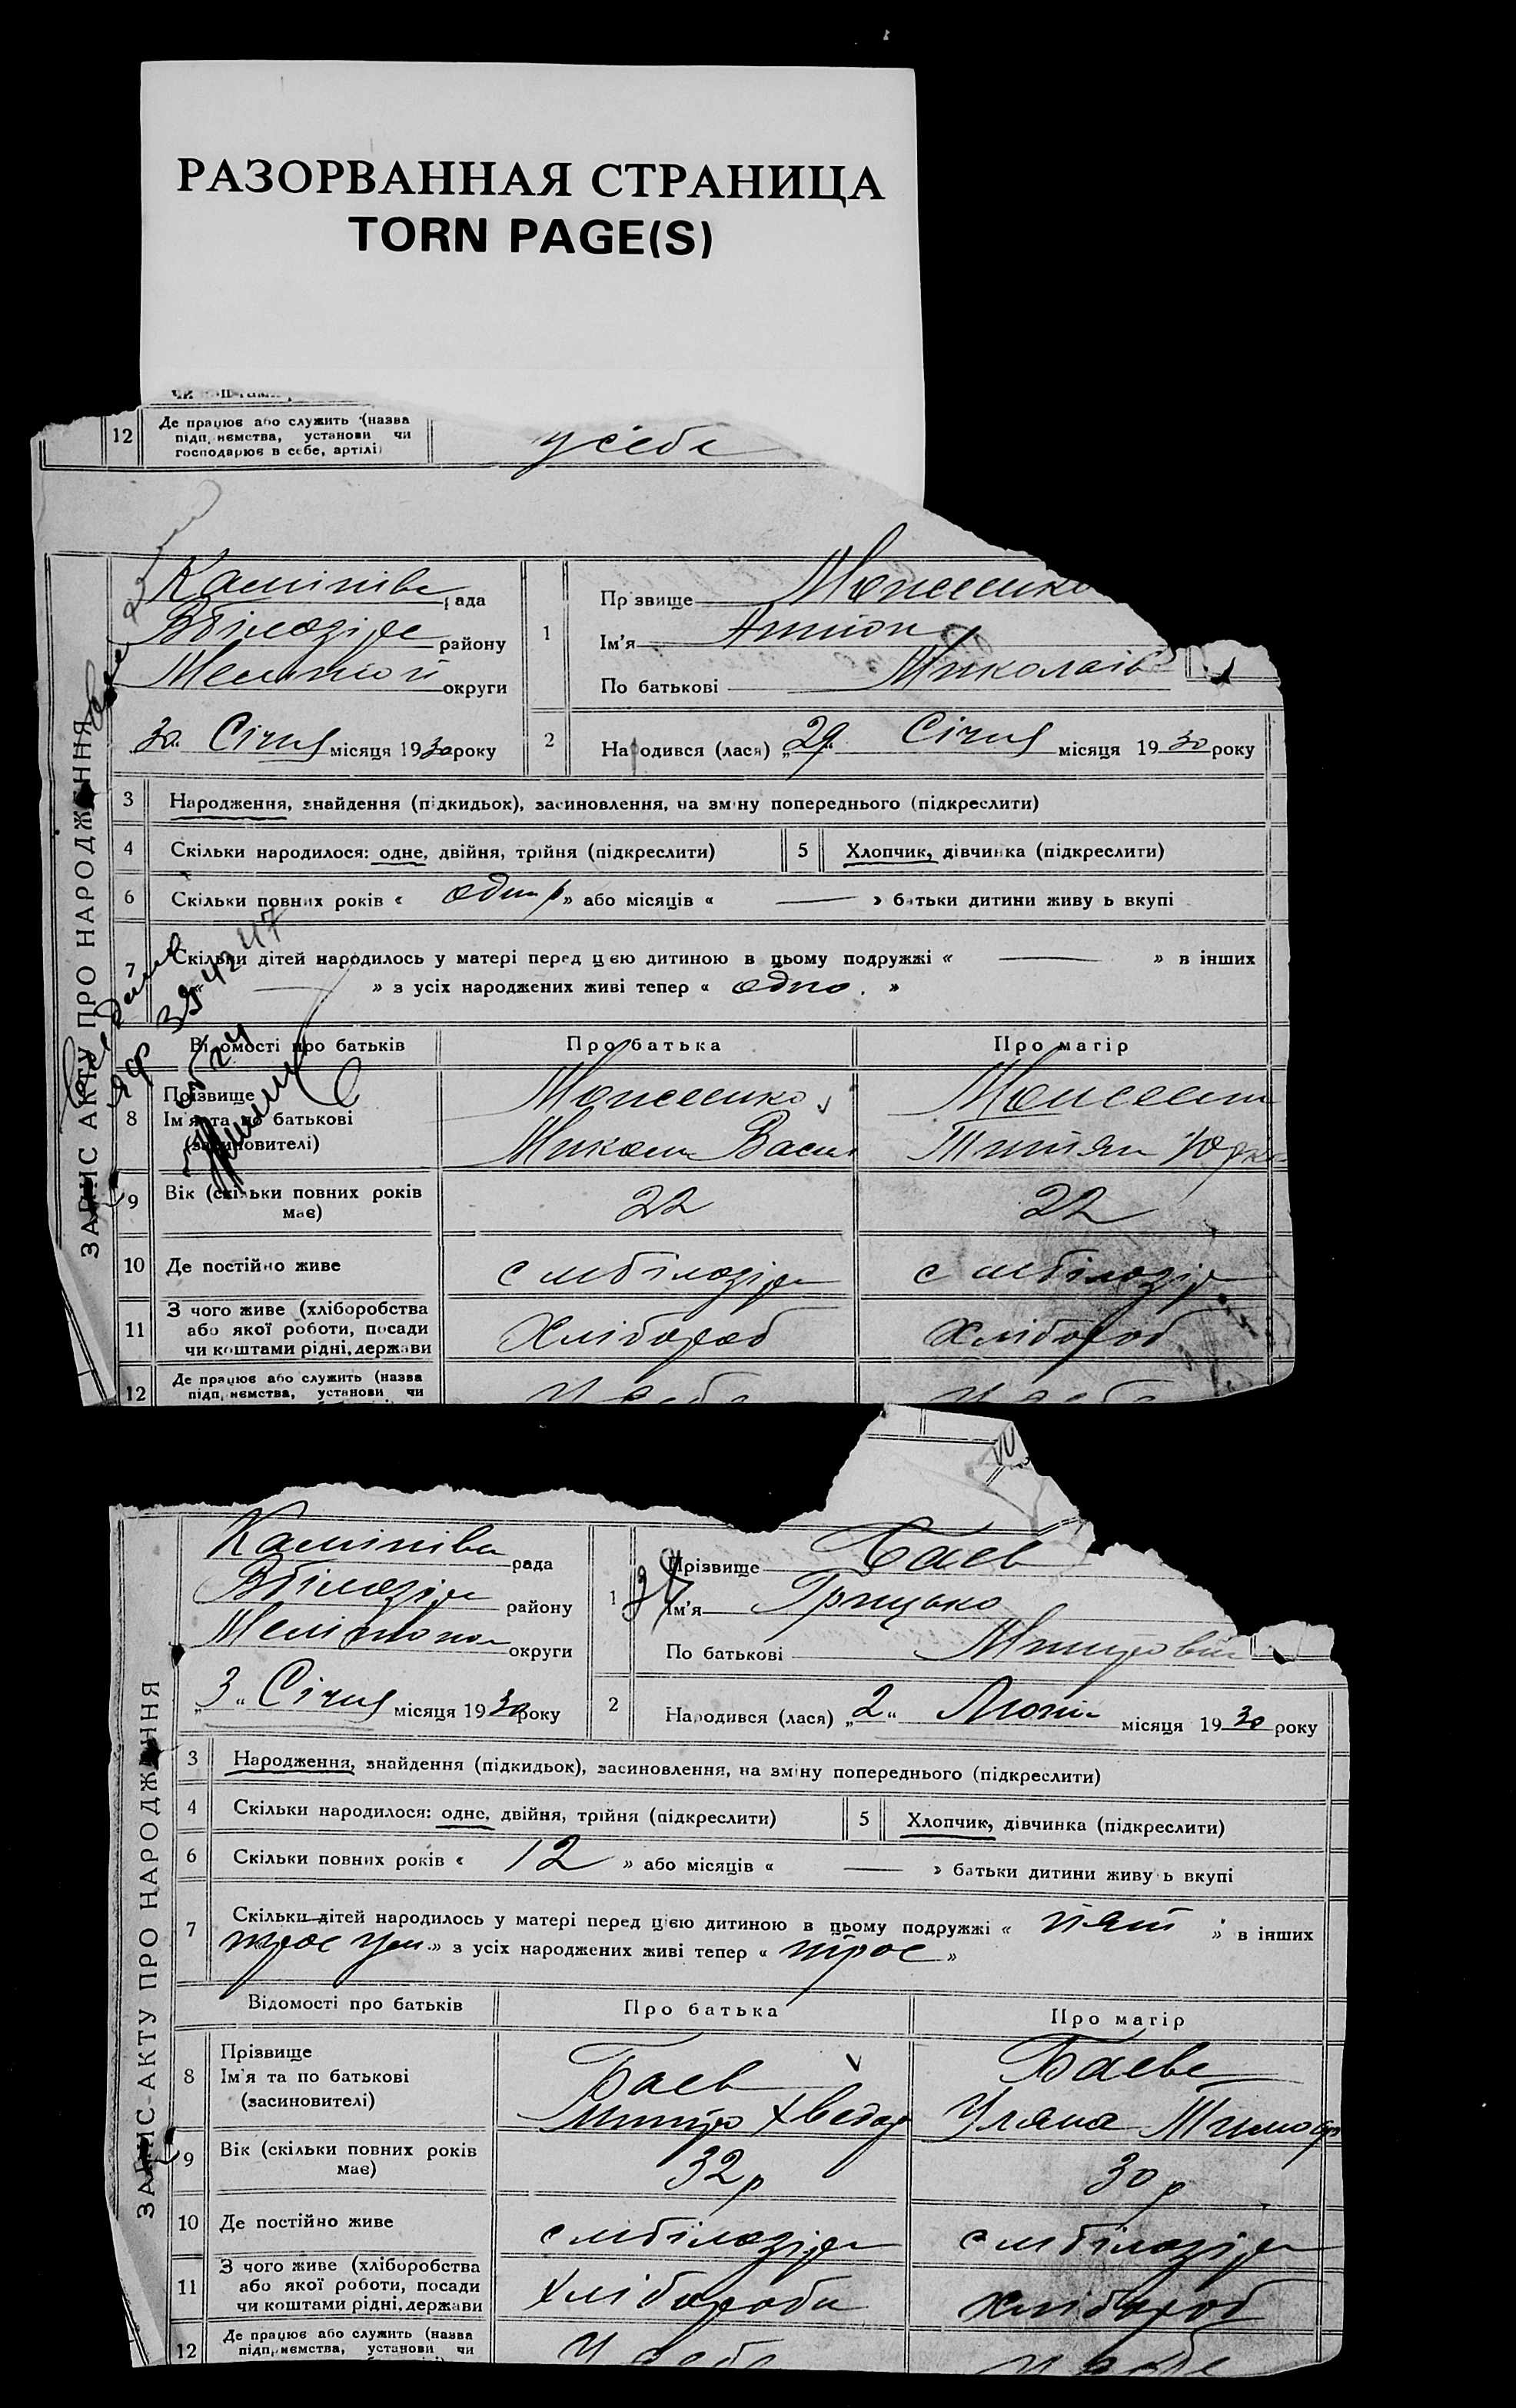 РАЗОРВАННАЯ СТРАНИЦА
TORN PAGE(S)
12 Де працює або служить (назва підприємства, установи чи господарює в себе, артілі)
у себе
ЗАПИС АКТУ ПРО НАРОДЖЕННЯ
рада
району
округи
30 Січня місяця 1930 року
1 Прізвище Моисеенко
Ім'я Антон
По батькові Миколаїв
2 Народився (лася) „29“ Січня місяця 1930 року
3 Народження, знайдення (підкидьок), засиновлення, на зміну попереднього (підкреслити)
4 Скільки народилося: одне, двійня, трійня (підкреслити)
5 Хлопчик, дівчинка (підкреслити)
6 Скільки повних років « один р » або місяців « — » батьки дитини живуть вкупі
7 Скільки дітей народилось у матері перед цією дитиною в цьому подружжі « — » в інших
« — » з усіх народжених живі тепер « одно. »
Відомості про батьків
Про батька
Про матір
8 Прізвище Ім'я та по батькові (засиновителі)
Моисеенко
Микола Васи
9 Вік (скільки повних років має)
22
22
10 Де постійно живе
с мбілозір
с мбілозір
11 З чого живе (хліборобства або якої роботи, посади чи коштами рідні, держави
Хлібороб
Хлібороб
12 Де працює або служить (назва підприємства, установи чи
У себе
У себе
ЗАПИС АКТУ ПРО НАРОДЖЕННЯ
рада
району
округи
„3“ Січня місяця 1930 року
1 Прізвище Баев
Ім'я Грицько
По батькові
2 Народився (лася) „2“ місяця 1930 року
3 Народження, знайдення (підкидьок), засиновлення, на зміну попереднього (підкреслити)
4 Скільки народилося: одне, двійня, трійня (підкреслити)
5 Хлопчик, дівчинка (підкреслити)
6 Скільки повних років « 12 » або місяців « — » батьки дитини живуть вкупі
7 Скільки дітей народилось у матері перед цією дитиною в цьому подружжі « пят » в інших
» з усіх народжених живі тепер « троє »
Відомості про батьків
Про батька
Про матір
8 Прізвище Ім'я та по батькові (засиновителі)
Баев
Хведор
Баева
Уляна Тимоф
9 Вік (скільки повних років має)
32 р
30 р
10 Де постійно живе
с мбілозір
с мбілозір
11 З чого живе (хліборобства або якої роботи, посади чи коштами рідні, держави
хлібороб
хлібороб
12 Де працює або служить (назва підприємства, установи чи
У себе
У себе